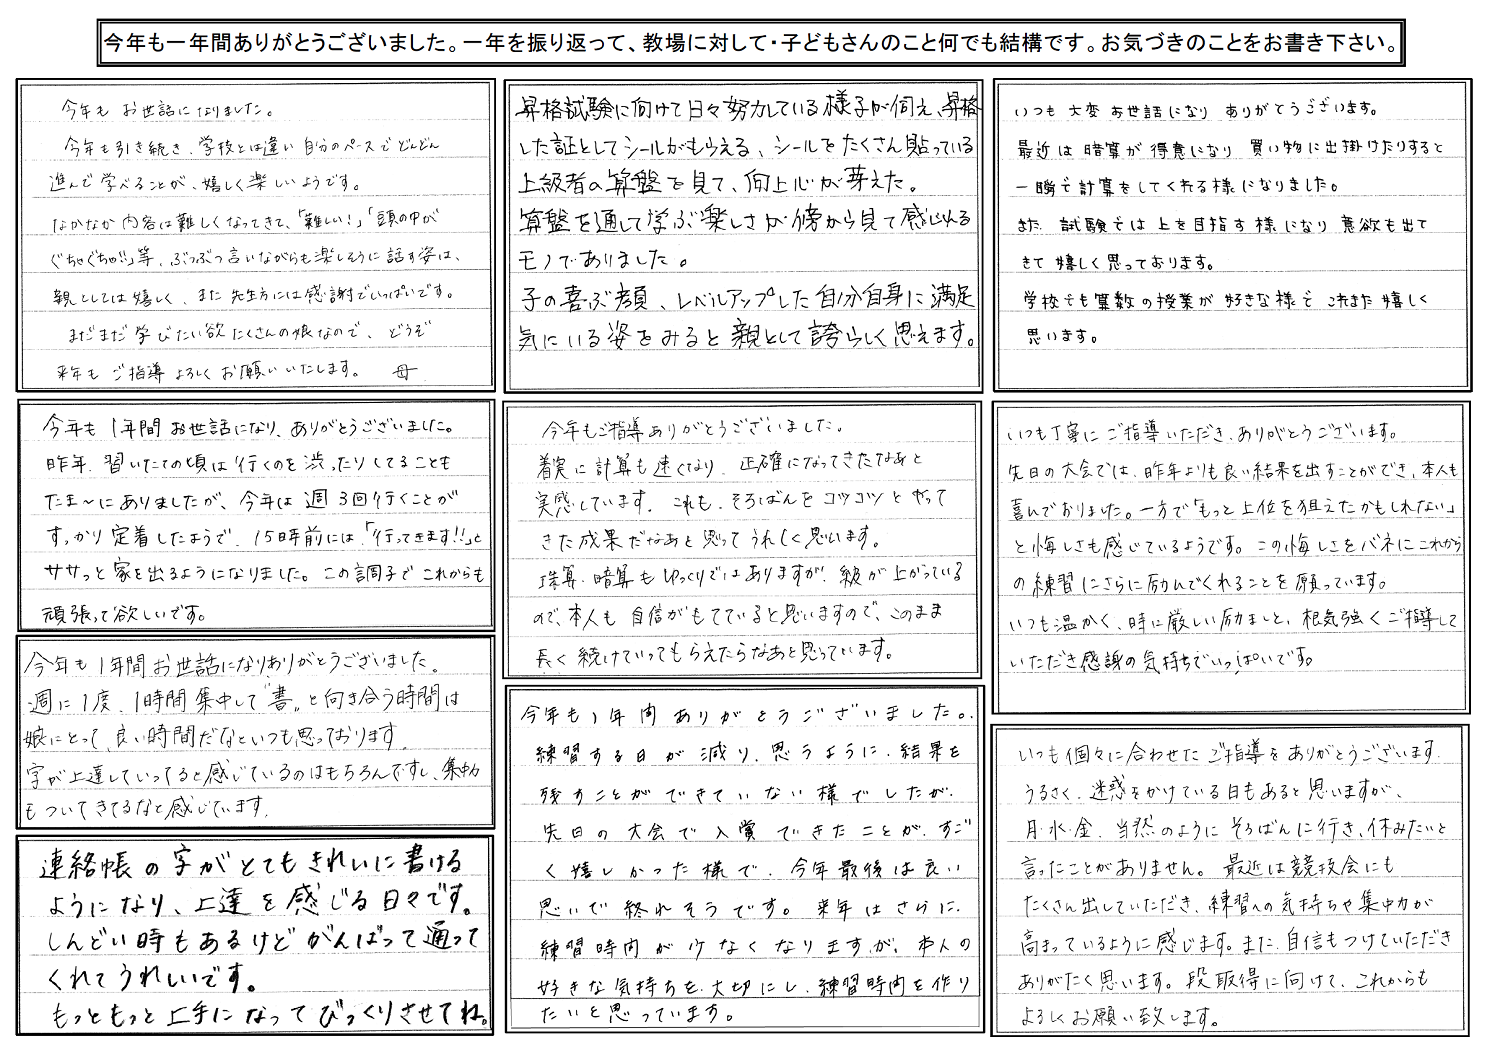 今年も一年間ありがとうございました。一年を振り返って、教場に対して・子どもさんのこと何でも結構です。お気づきのことをお書き下さい。
今年も お世話になりました。
今年も引き続き、学校とは違い 自分のペースで どんどん
進んで 学べることが、嬉しく楽しいようです。
なかなか 内容は難しくなってきて、「難しい！」「頭の中が
ぐちゃぐちゃ!!」等、ぶつぶつ言いながらも楽しそうに 話す姿は、
親としては 嬉しく、また 先生方には感謝でいっぱいです。
まだまだ 学びたい欲たくさんの娘なので、どうぞ
来年も ご指導 よろしく お願いいたします。 母
今年も 1年間 お世話になり、ありがとうございました。
昨年、習いたての頃は 行くのを 渋ったりしてることも
たま〜にありましたが、今年は 週3回 行くことが
すっかり 定着したようで、15時前には、「行ってきます!!」と
ササっと 家を出るようになりました。この調子で これからも
頑張って欲しいです。
今年も 1年間 お世話になりありがとうございました。
週に1度、1時間 集中して“書”と向き合う時間は
娘にとって、良い時間だなといつも思っております。
字が上達していってると感じているのはもちろんですし、集中力
もついてきてるなと感じています。
連絡帳の字がとてもきれいに書ける
ようになり、上達を感じる日々です。
しんどい時もあるけどがんばって通って
くれてうれしいです。
もっともっと上手になってびっくりさせてね。
昇格試験に向けて日々努力している様子が伺え、昇格
した証としてシールがもらえる、シールをたくさん貼っている
上級者の算盤を見て、向上心が芽えた。
算盤を通して学ぶ楽しさが傍から見て感じれる
モノでありました。
子の喜ぶ顔、レベルアップした自分自身に満足
気にいる姿をみると親として誇らしく思えます。
今年もご指導ありがとうございました。
着実に計算も速くなり、正確になってきたなあと
実感しています。これも、そろばんをコツコツとやって
きた成果だなあと思ってうれしく思います。
珠算・暗算もゆっくりではありますが、級が上がっている
ので、本人も 自信がもてていると思いますので、このまま
長く続けていってもらえたらなあと思っています。
今年も1年間ありがとうございました。
練習する日が減り、思うように、結果を
残すことができていない様でしたが、
先日の大会で入賞できたことが、すご
く嬉しかった様で、今年最後は良い
思いで終れそうです。来年はさらに、
練習時間が少なくなりますが、本人の
好きな気持ちを大切にし、練習時間を作り
たいと思っています。
いつも 大変 お世話になり ありがとうございます。
最近は 暗算が得意になり 買い物に出掛けたりすると
一瞬で計算をしてくれる様になりました。
また 試験では 上を目指す様になり 意欲も出て
きて 嬉しく思っております。
学校でも算数の授業が好きな様で これまた嬉しく
思います。
いつも丁寧にご指導いただき、ありがとうございます。
先日の大会では、昨年よりも良い結果を出すことができ、本人も
喜んでおりました。一方で「もっと上位を狙えたかもしれない」
と悔しさも感じているようです。この悔しさをバネにこれから
の練習にさらに励んでくれることを願っています。
いつも温かく、時に厳しい励ましと、根気強くご指導して
いただき感謝の気持ちでいっぱいです。
いつも個々に合わせたご指導をありがとうございます。
うるさく、迷惑をかけている日もあると思いますが、
月・水・金、当然のようにそろばんに行き、休みたいと
言ったことがありません。最近は競技会にも
たくさん出していただき、練習への気持ちや集中力が
高まっているように感じます。また、自信もつけていただき
ありがたく思います。段取得に向けて、これからも
よろしくお願い致します。